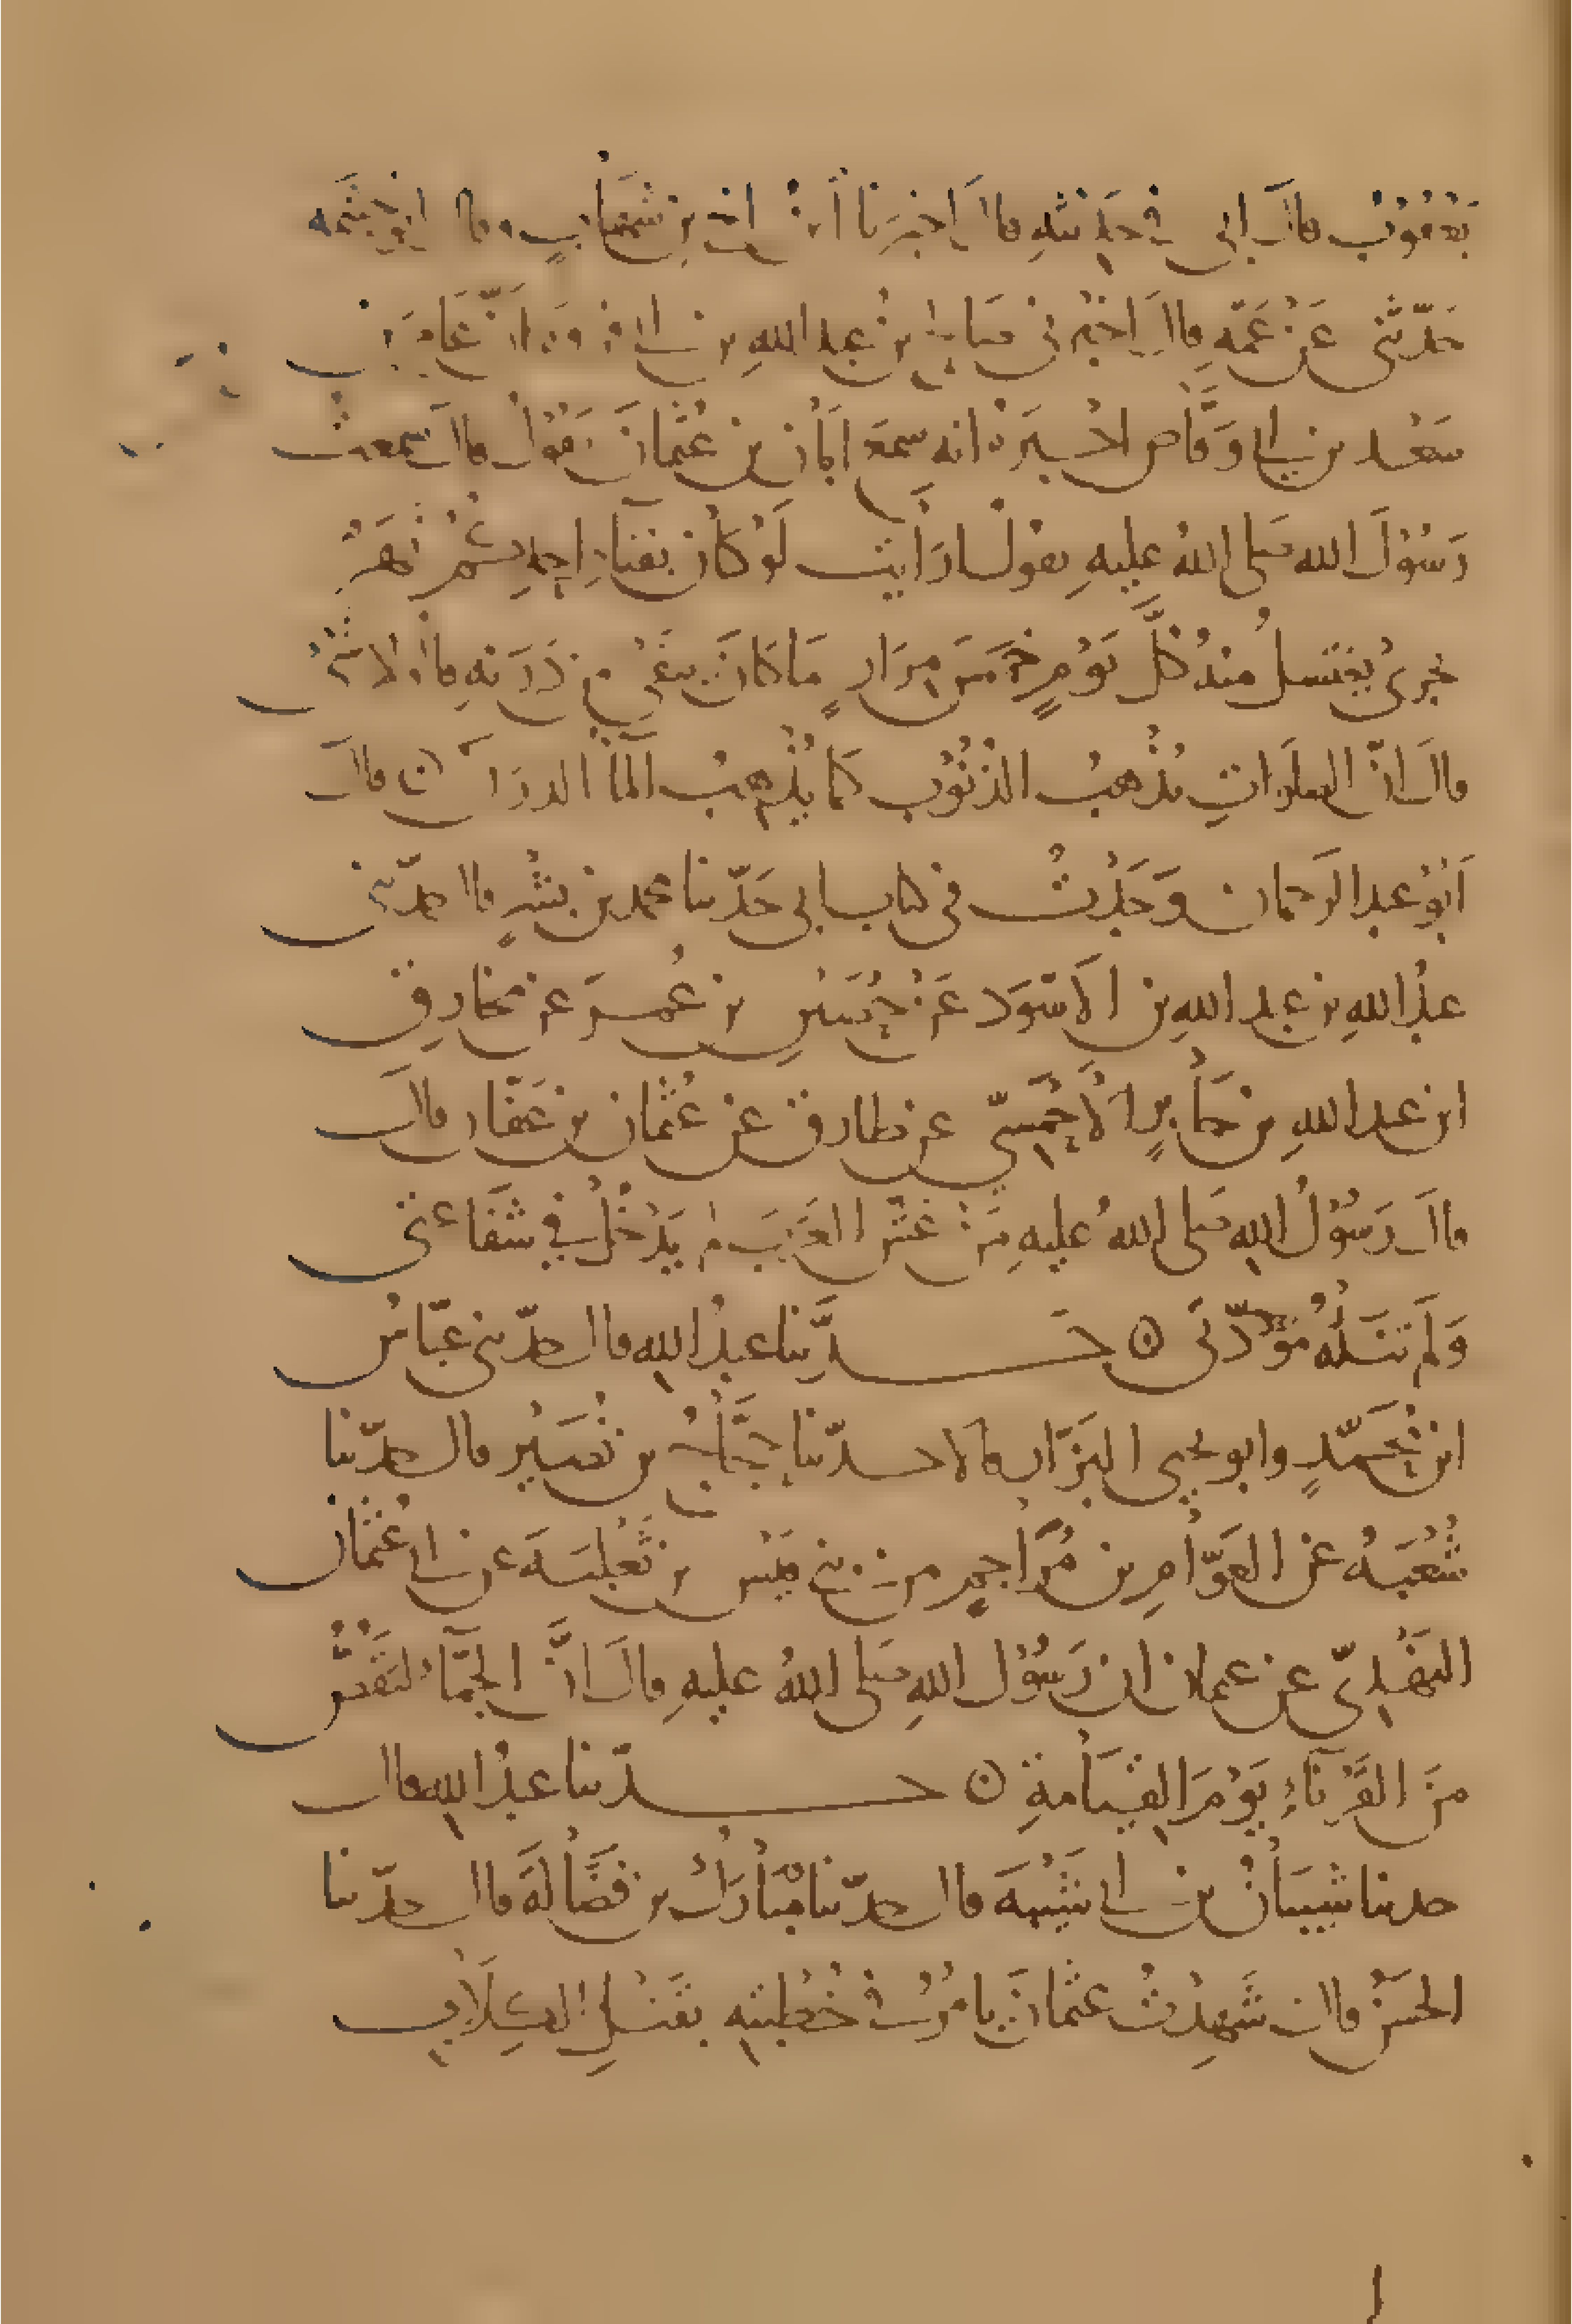 يعقوب قال ابي في حديثه قال اخبرنا ابن اخي بن شهاب وقال ابو خيثمه
حدّثني عَنْ عَمّه قال اَخبرني صالح بن عبد اللهِ بن ابي فروه انّ عَامر بن
سَعْد بن ابي وَقّاص اخبرَه انه سمعَ ابَان بن عُثمانَ يَقوُل قال سمعت
رَسُوْلَ الله صَلى اللهُ عليهِ يقول ارَاَيت لَوْ كان بفنَاءِ احدِكُم نَهَرٌ
يجرى يغتسلُ منهُ كلَّ يَوْمٍ خمسَ مِرَارٍ مَا كانَ يبقى من دَرَنه قالوا لا شئ
قال انّ الصلوَاتِ تُذْهبُ الذُنُوْب كما يُذْهِبُ الماَ الدرَن ن قال
اَبُو عبد الرّحمان وَجَدْتُ في كتاب ابي حَدّثنا محمد بن بِشْرٍ قال حدّثني
عبدُ اللهِ بن عبد اللهِ بن الاَسْوَد عَنْ حُصَينِ بن عُمرَ عن مخارق
ابن عبد اللهِ بن جَابرٍ الاَحْمَسيّ عن طارق عن عُثمان بن عَفّان قال
قال رَسُوْلُ اللهِ صَلى اللهُ عليهِ مَنْ غَشّ العَرَبَ لم يَدْخُلْ في شَفَاعَتي
وَلَم تَنَلْهُ مَوَدّتي ن حَدَّثنا عبدُ اللهِ قال حدّثني عبّاسُ
ابن مُحَمّدٍ وابو يحيى البَزّاز قالا حدّثنا حَجَّاجُ بن نُصَيْر قال حدّثنا
شُعْبَهُ عن العَوّامِ بن مُرَاجمٍ من بني قيْس بن ثَعْلبَهَ عن ابي عُثمان
النَهْديّ عن عثمان ان رَسُوْل اللهِ صَلى اللهُ عليهِ قالَ انّ الجَمّاءَ لتُقَصُّ
منَ القَرْنَاءِ يَوْمَ القيَامةِ ن حدّثنا عبدُ اللهِ قال
حدثنا شَيبَانُ بن ابي شَيْبَهَ قال حدّثنا مُبَارَكُ بن فَضَالَةَ قال حدّثنا
الحسَنُ قال شَهِدْتُ عثمَانَ يامُرُ في خُطبتهِ بقَتْلِ الكِلَابِ